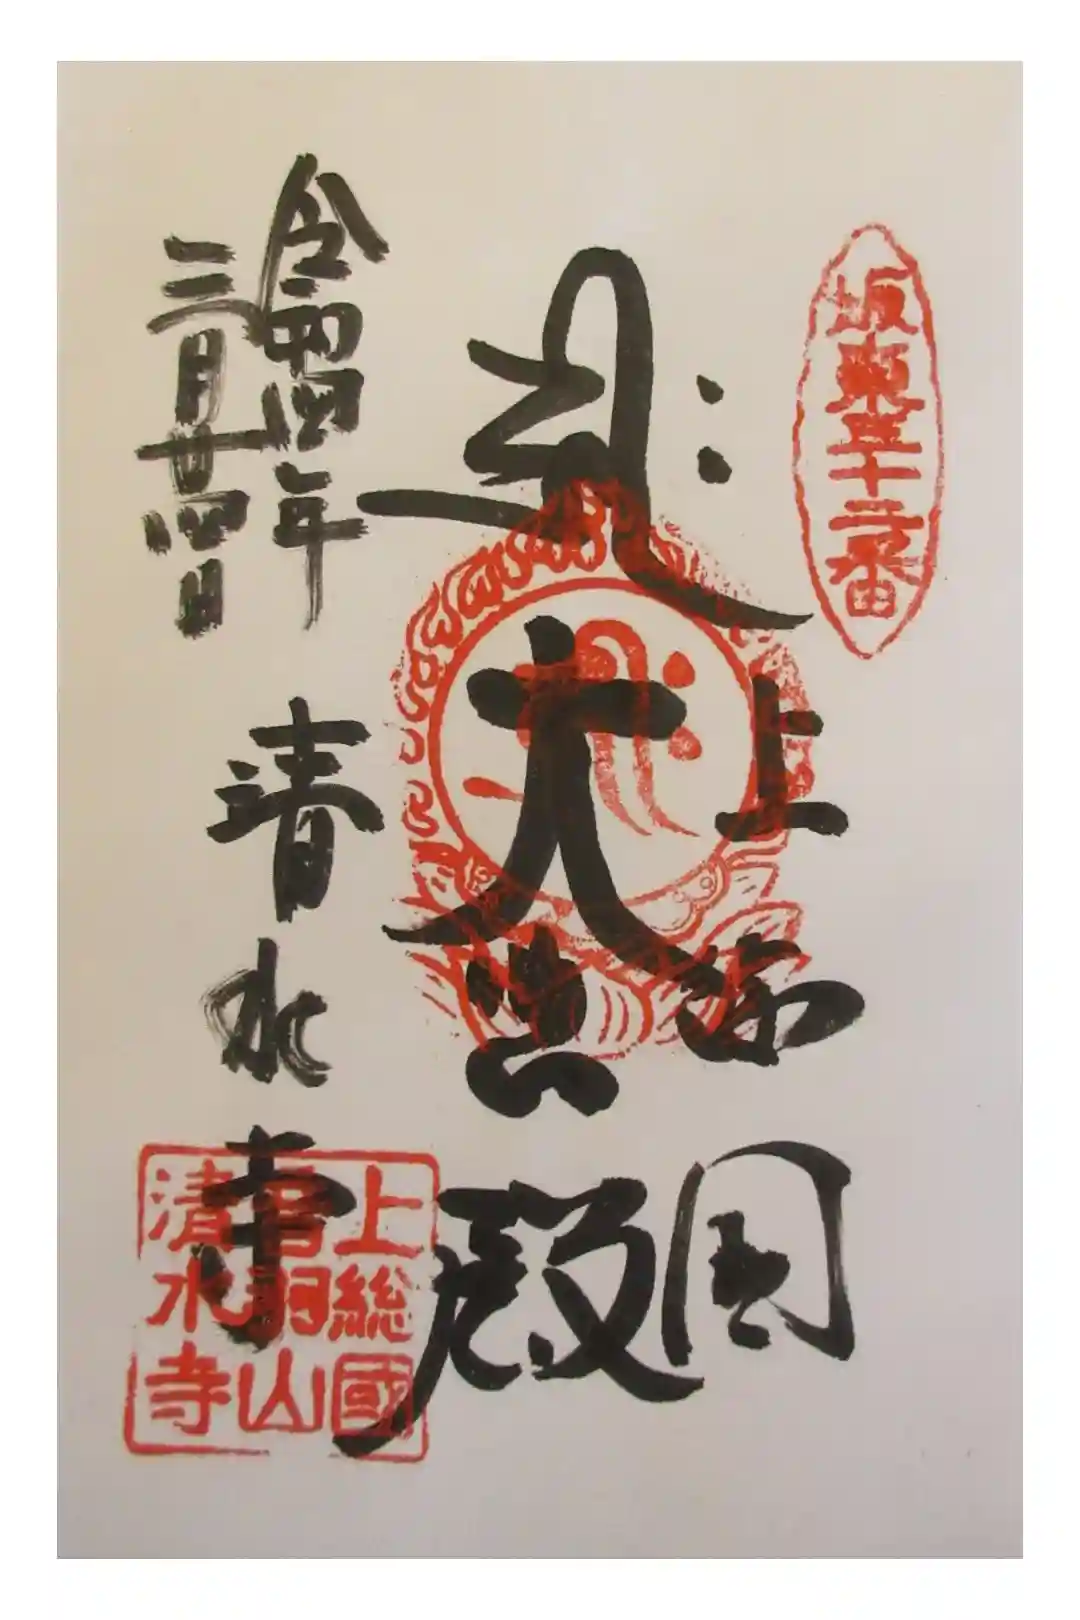 坂東三十二番
上総国
大悲殿
令和四年
三月廿四日
清水寺
上総國
音羽山
清水寺